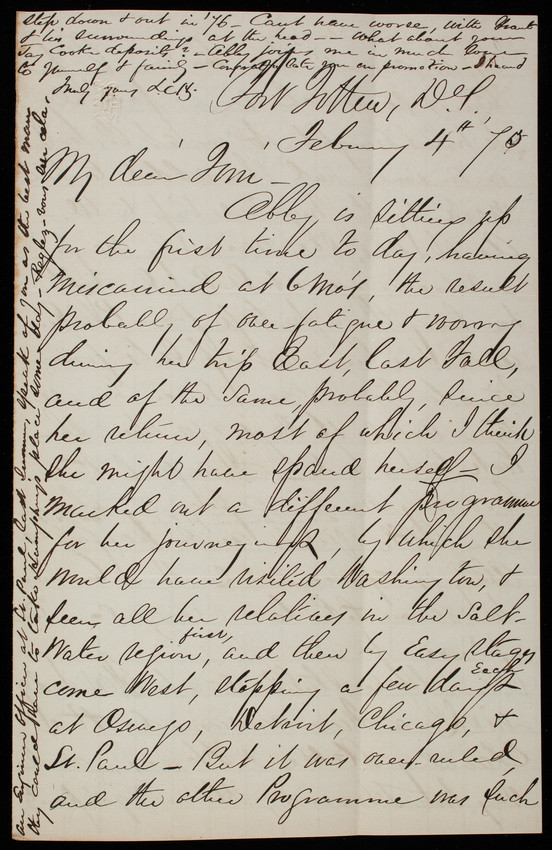 step down & out in '76 - Can't have worse, with Grant
& his surroundings at the head - - What about your
Jay Cooke deposits? - Abby joins me in much love
to yourself & family - Congratulate you on promotion -
Truly yours L.C.H.
Fort Totten, D.T.,
February 4th 75
My dear Tom -
Abby is sitting up
for the first time to day, having
miscarried at 6 mo's, the result
probably of over-fatigue & worry
during her trip East, last Fall,
and of the same, probably, since
her return, most of which I think
she might have spared herself - I
marked out a different programme
for her journeyings, by which she
would have visited Washington, &
seen all her relatives in the Salt-
Water region, first, and then by Easy stages
come West, stopping a few days Each
at Oswego, Detroit, Chicago, &
St. Paul - But it was over-ruled,
and the other Programme was such
an Engineer Officer at St. Paul, last Summer, speak of you as the best man
they could have to take Humphreys place some day -